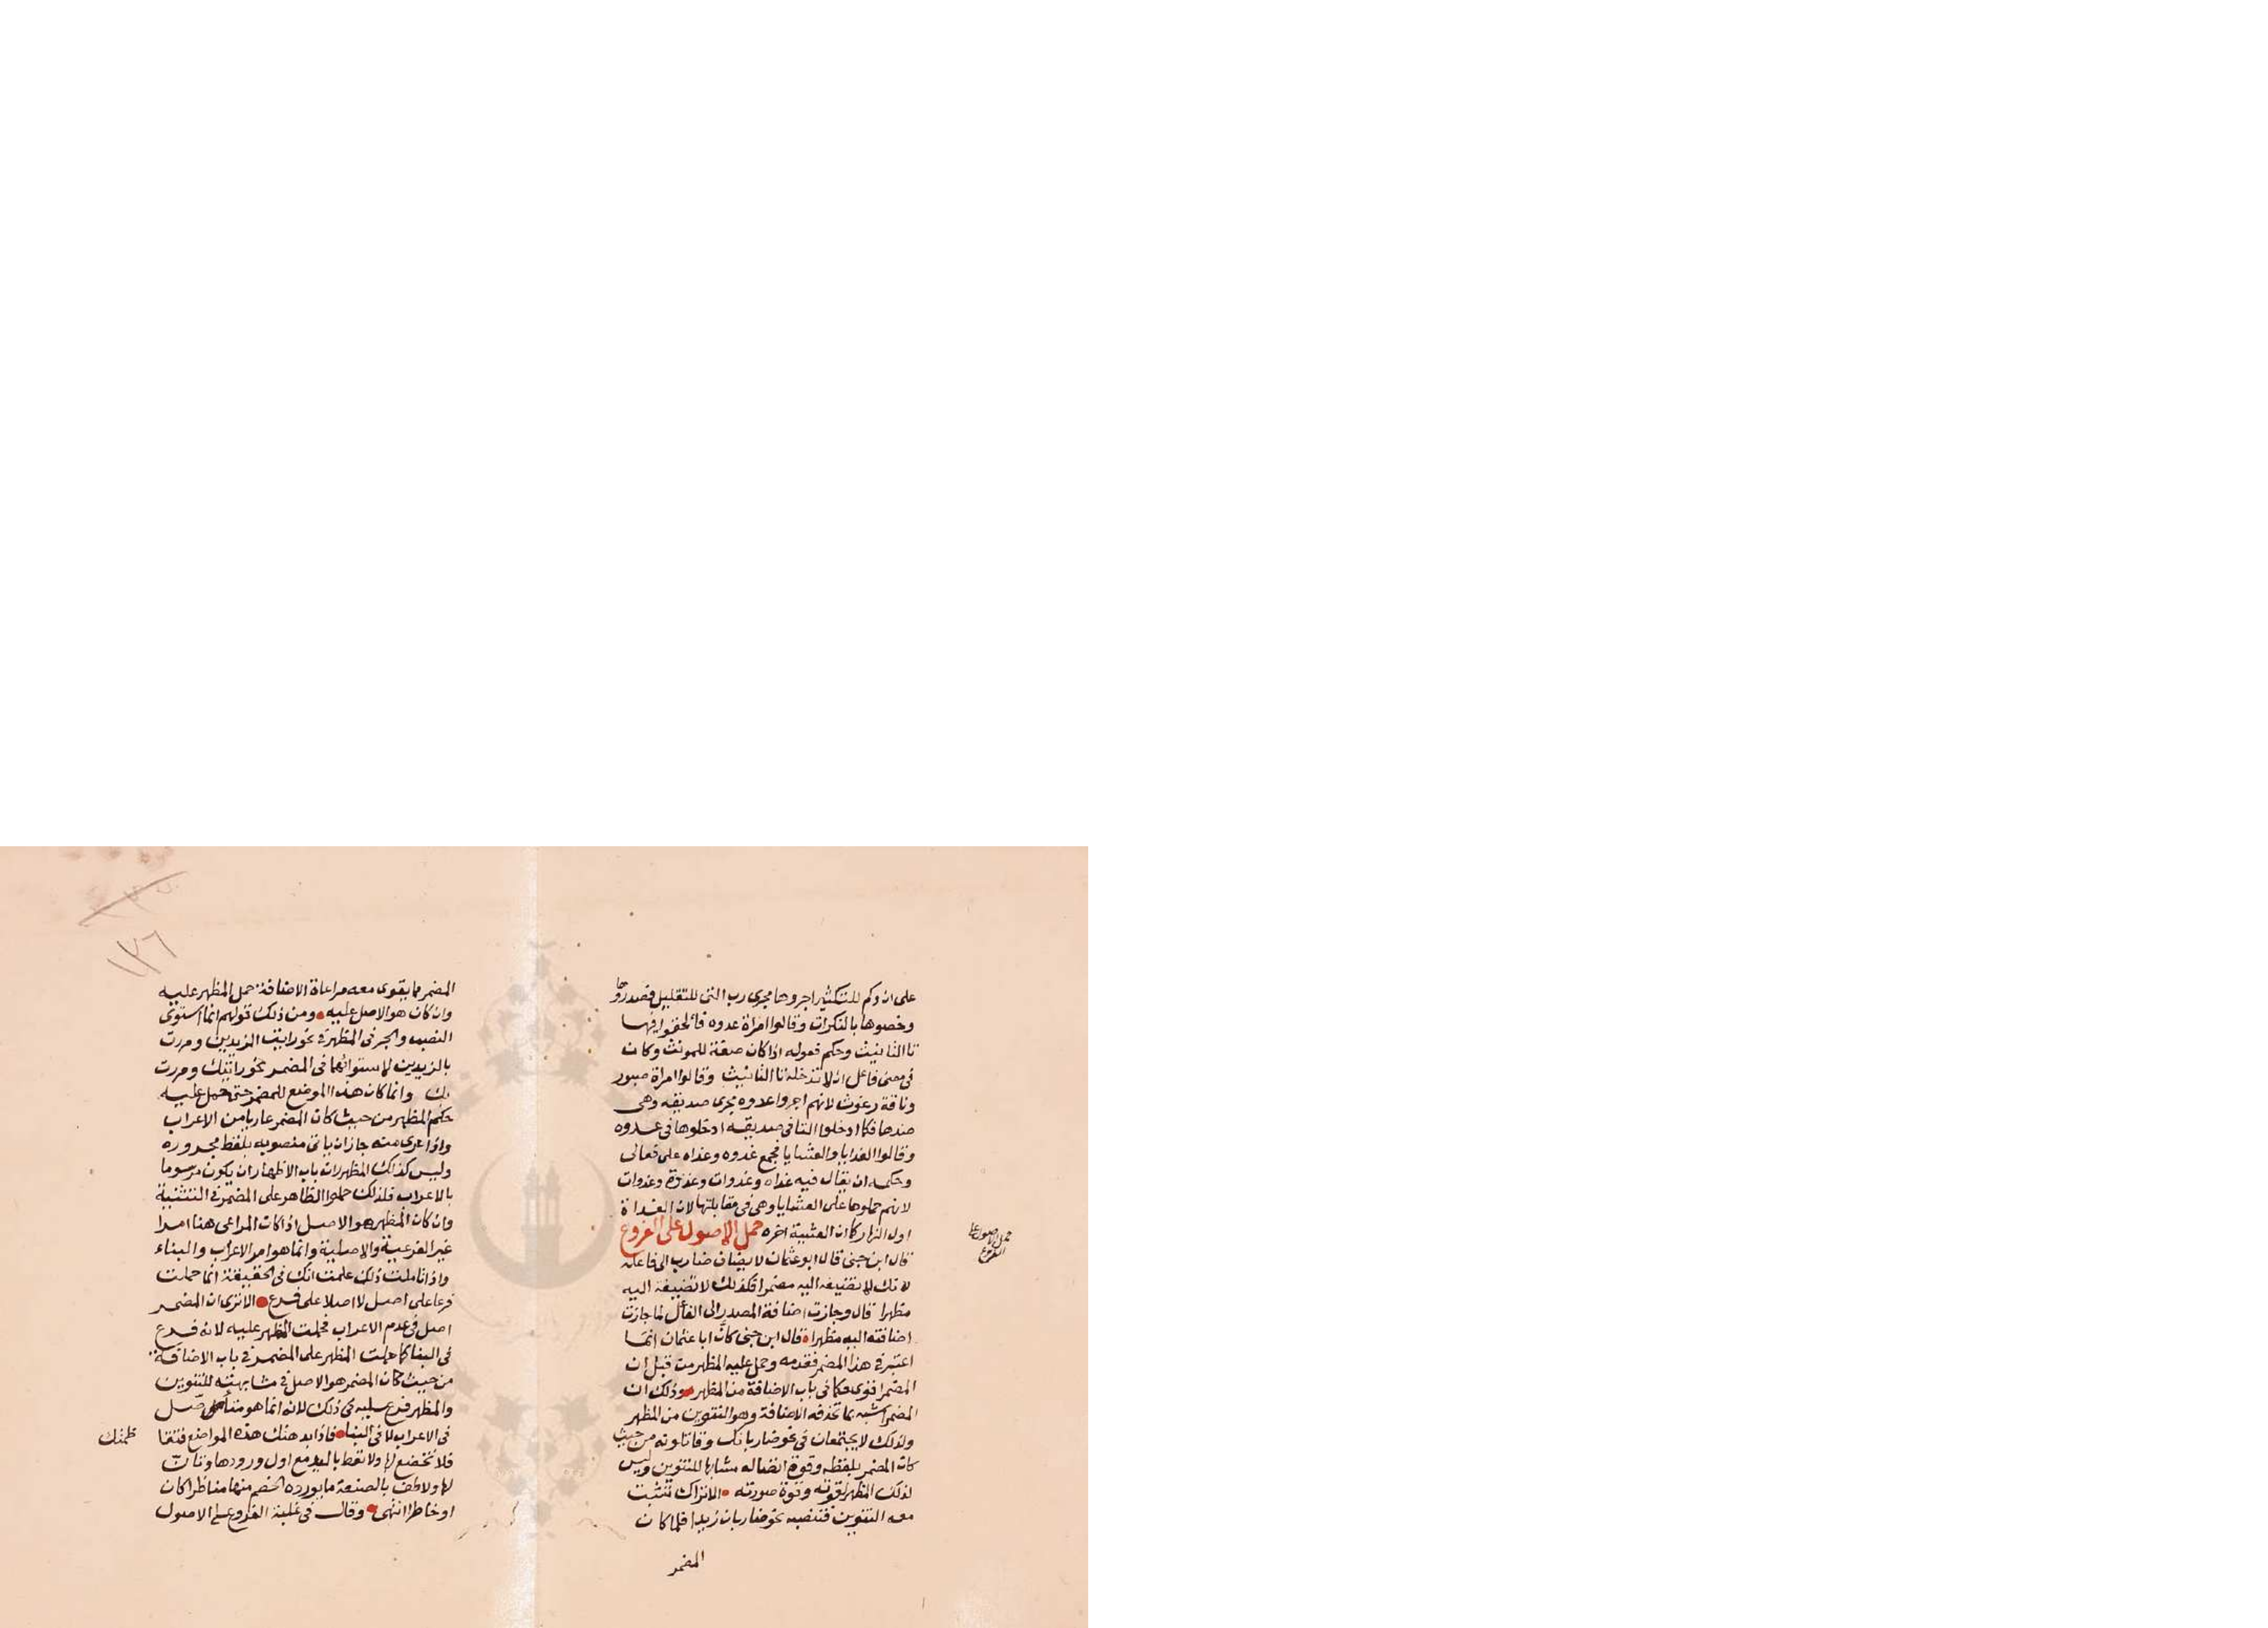 على ان وكم للتكثير اجروها مجرى رب التى للتقليل فصدروها
وخصوها بالنكرات وقالوا امراة عدوه فالحقوا فيها
تا التانيث وحكم فعوله اذا كان صفة للمونث وكان
فى معنى فاعل ان لا تدخله تا التانيث وقالوا امراة صبور
وناقة رعوث لانهم اجروا عدوه مجرى صديقه وهى
ضدها فكما ادخلوا التا فى صديقه ادخلوها فى عدوه
وقالوا الغدايا والعشايا فجمع غدوه وغداه على فعالى
وحكمه ان يقال فيه غداه وغدوات وغدوة وغدوات
لانهم حملوها على العشايا وهى فى مقابلتها لان الغداة
اول النهار كما ان العشية اخره حمل الاصول على الفروع
قال ابن جنى قال ابو عثمان لا يضاف ضارب الى فاعله
لانك لا تضيفه اليه مضمرا فكذلك لا تضيفه اليه
مظهرا قال وجازت اضافة المصدر الى الفاعل لما جازت
اضافته اليه مظهرا قال ابن جنى كانّ ابا عثمان انما
اعتبر فى هذا المضمر فقدمه وحمل عليه المظهر من قبل ان
المضمر اقوى حكما فى باب الاضافة من المظهر وذلك ان
المضمر اشبه بما تحذفه الاضافة وهو التنوين من المظهر
ولذلك لا يجتمعان فى نحو ضاربانك وقاتلونه من حيث
كان المضمر بلفظه وقوة اتصاله مشابها للتنوين وليس
لذلك المظهر لقوته وقوة صورته الا تراك تثبت
معه التنوين فتنصبه نحو ضاربان زيدا فلما كان
المضمر
حمل الاصول على
الفروع
١٣٦
المضمر مما يقوى معه مراعاة الاضافة حمل المظهر عليه
وان كان هو الاصل عليه ومن ذلك قولهم انما استوى
النصب والجر فى المظهر فى نحو رايت الزيدين ومررت
بالزيدين لاستوائهما فى المضمر نحو رايتك ومررت
بك وانما كان هذا الموضع للمضمر حتى حمل عليه
حكم المظهر من حيث كان المضمر عاريا من الاعراب
واذا عرى منه جاز ان ياتى منصوبه بلفظ مجروره
وليس كذلك المظهر لان باب الاظهار ان يكون مرسوما
بالاعراب فلذلك حملوا الظاهر على المضمر فى التثنية
وان كان المظهر هو الاصل اذ كان المراعى هنا امرا
غير الفرعية والاصلية وانما هو امر الاعراب والبناء
واذا تاملت ذلك علمت انك فى الحقيقة انما حملت
فرعا على اصل لا اصلا على فرع الا ترى ان المضمر
اصل فى عدم الاعراب فحملت المظهر عليه لانه فرع
فى البنا كما حملت المظهر على المضمر فى باب الاضافة
من حيث كان المضمر هو الاصل فى مشابهته للتنوين
والمظهر فرع عليه فى ذلك لانه انما هو متأصل
فى الاعراب لا فى البنا فاذا بدهتك هذه المواضع فتقا
ظمتك
فلا تخضع لها ولا تعط باليد مع اول ورودها وتاتّ
لها ولاطف بالصنعة ما يورده الخصم منها مناظرا كان
او خاطرا انتهى وقال فى غلبة الفروع على الاصول